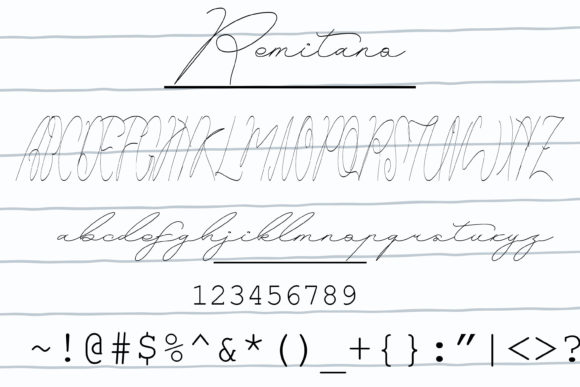 Remitano
ABCDEFGHIJKLMNOPQRSTUVWXYZ
abcdefghjiklmnopqrstuvxyz
123456789
~!@#$%^&*()_+{}:"|<>?